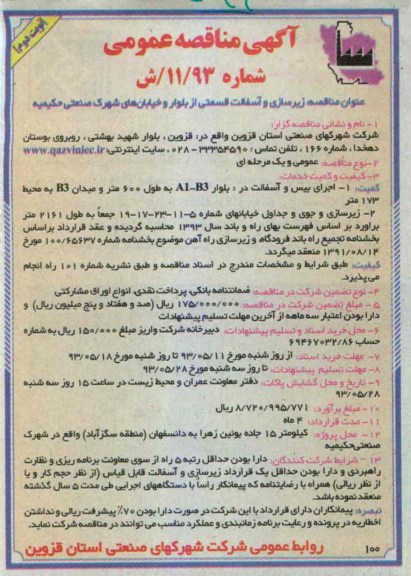 نوبت دوم
آگهی مناقصه عمومی
شماره ۱۱/۹۳/ش
عنوان مناقصه: زیرسازی و آسفالت قسمتی از بلوار و خیابان‌های شهرک صنعتی حکیمیه
۱- نام و نشانی مناقصه گزار:
شرکت شهرکهای صنعتی استان قزوین واقع در: قزوین، بلوار شهید بهشتی، روبروی بوستان
دهخدا، شماره ۱۶۶، تلفن تماس: ۳۳۳۵۴۵۹۰ - ۰۲۸، سایت اینترنتی: www.qazviniec.ir
۲- نوع مناقصه: عمومی و یک مرحله ای
۳- کیفیت و کمیت خدمات:
کمیت: ۱- اجرای بیس و آسفالت در: بلوار A1-B3 به طول ۶۰۰ متر و میدان B3 به محیط
۱۷۳ متر
۲- زیرسازی و جوی و جداول خیابانهای شماره ۵-۱۱-۲۳-۱۷-۱۹ جمعاً به طول ۲۱۶۱ متر
برآورد بر اساس فهرست بهای راه و باند سال ۱۳۹۳ محاسبه گردیده و عقد قرارداد براساس
بخشنامه تجمیع راه باند فرودگاه و زیرسازی راه آهن موضوع بخشنامه شماره ۱۰۰/۶۵۶۳۷ مورخ
۱۳۹۱/۰۸/۱۴ منعقد میگردد.
کیفیت: طبق شرایط و مشخصات مندرج در اسناد مناقصه و طبق نشریه شماره ۱۰۱ راه انجام
می پذیرد.
۴- نوع تضمین شرکت در مناقصه: ضمانتنامه بانکی، پرداخت نقدی، انواع اوراق مشارکتی
۵- مبلغ تضمین شرکت در مناقصه: ۱۷۵/۰۰۰/۰۰۰ ریال (صد و هفتاد و پنج میلیون ریال) و
دارا بودن اعتبار سه ماهه از آخرین مهلت تسلیم پیشنهادات
۶- محل خرید اسناد و تسلیم پیشنهادات: دبیرخانه شرکت واریز مبلغ ۱۵۰/۰۰۰ ریال به شماره
حساب ۶۹۴۶۷۰۳۲/۸۶
۷- مهلت خرید اسناد: از روز شنبه مورخ ۹۳/۰۵/۱۱ تا روز شنبه مورخ ۹۳/۰۵/۱۸
۸- مهلت تسلیم پیشنهادات: تا روز سه شنبه مورخ ۹۳/۰۵/۲۸
۹- تاریخ و محل گشایش پاکات: دفتر معاونت عمران و محیط زیست در ساعت ۱۵ روز سه شنبه
۹۳/۰۵/۲۸
۱۰- مبلغ برآورد: ۸/۷۲۰/۹۹۵/۷۷۱ ریال
۱۱- مدت قرارداد: ۴ ماه
۱۲- محل پروژه: کیلومتر ۱۵ جاده بوئین زهرا به دانسفهان (منطقه سگزآباد) واقع در شهرک
صنعتی حکیمیه
۱۳- شرایط شرکت کنندگان: دارا بودن حداقل رتبه ۵ راه از سوی معاونت برنامه ریزی و نظارت
راهبردی و دارا بودن حداقل یک قرارداد زیرسازی و آسفالت قابل قیاس (از نظر حجم کار و یا
از نظر ریالی) همراه با رضایتنامه که پیمانکار راساً با دستگاههای اجرایی طی مدت ۵ سال گذشته
منعقد نموده باشد.
تبصره: پیمانکاران دارای قرارداد با این شرکت در صورت دارا بودن ۷۰٪ پیشرفت ریالی و نداشتن
اخطاریه در پرونده و رعایت برنامه زمانبندی و عملکرد مناسب می توانند در مناقصه شرکت نمایند.
۱۰۰ روابط عمومی شرکت شهرکهای صنعتی استان قزوین